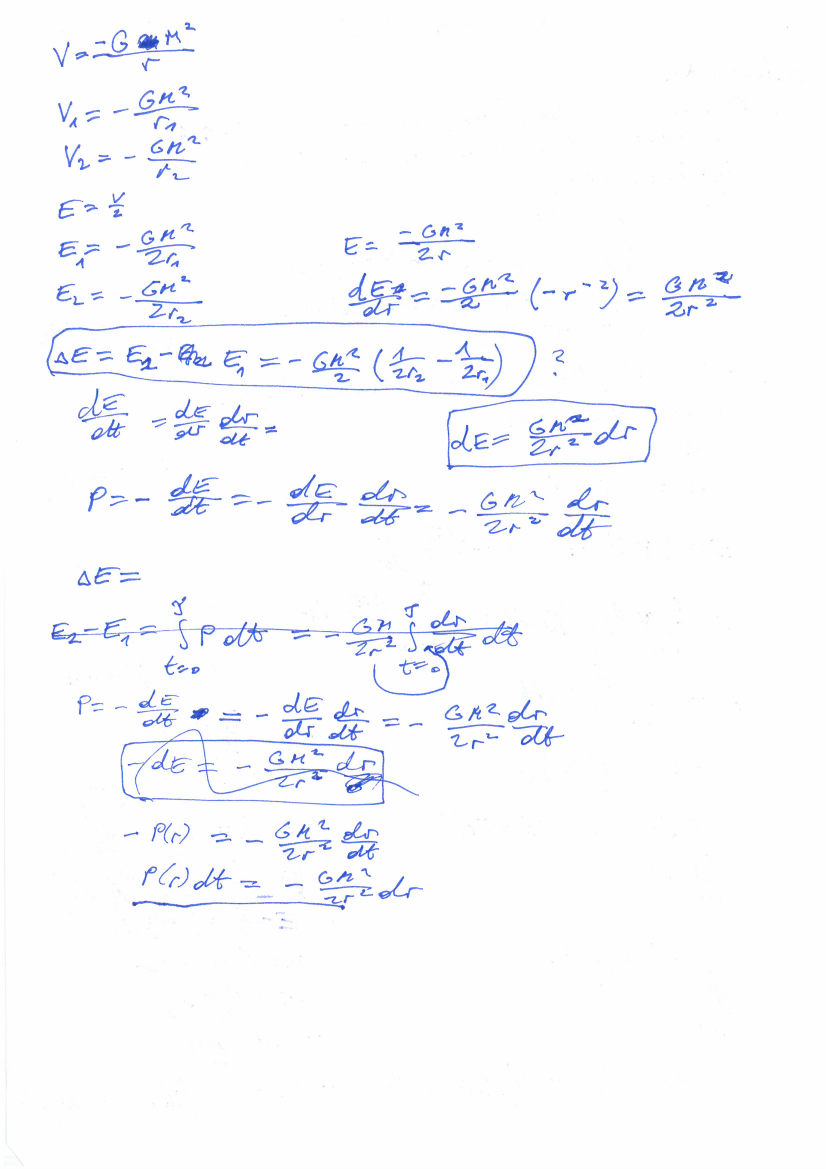 V = -G M² / r
V₁ = - GM² / r₁
V₂ = - GM² / r₂
E = V/2
E₁ = - GM² / 2r₁
E = -GM² / 2r
E₂ = - GM² / 2r₂
dE/dr = -GM²/2 (-r⁻²) = GM² / 2r²
ΔE = E₂ - E₁ = - GM²/2 (1/2r₂ - 1/2r₁) ?
dE/dt = dE/dr dr/dt =
dE = GM²/2r² dr
P = - dE/dt = - dE/dr dr/dt = - GM²/2r² dr/dt
ΔE =
E₂ - E₁ = ∫ t=0 P dt = - GM/2r² ∫ t=0 dr/dt dt
P = - dE/dt = - dE/dr dr/dt = - GM²/2r² dr/dt
- dE = - GM²/2r² dr
- P(r) = - GM²/2r² dr/dt
P(r) dt = - GM²/2r² dr